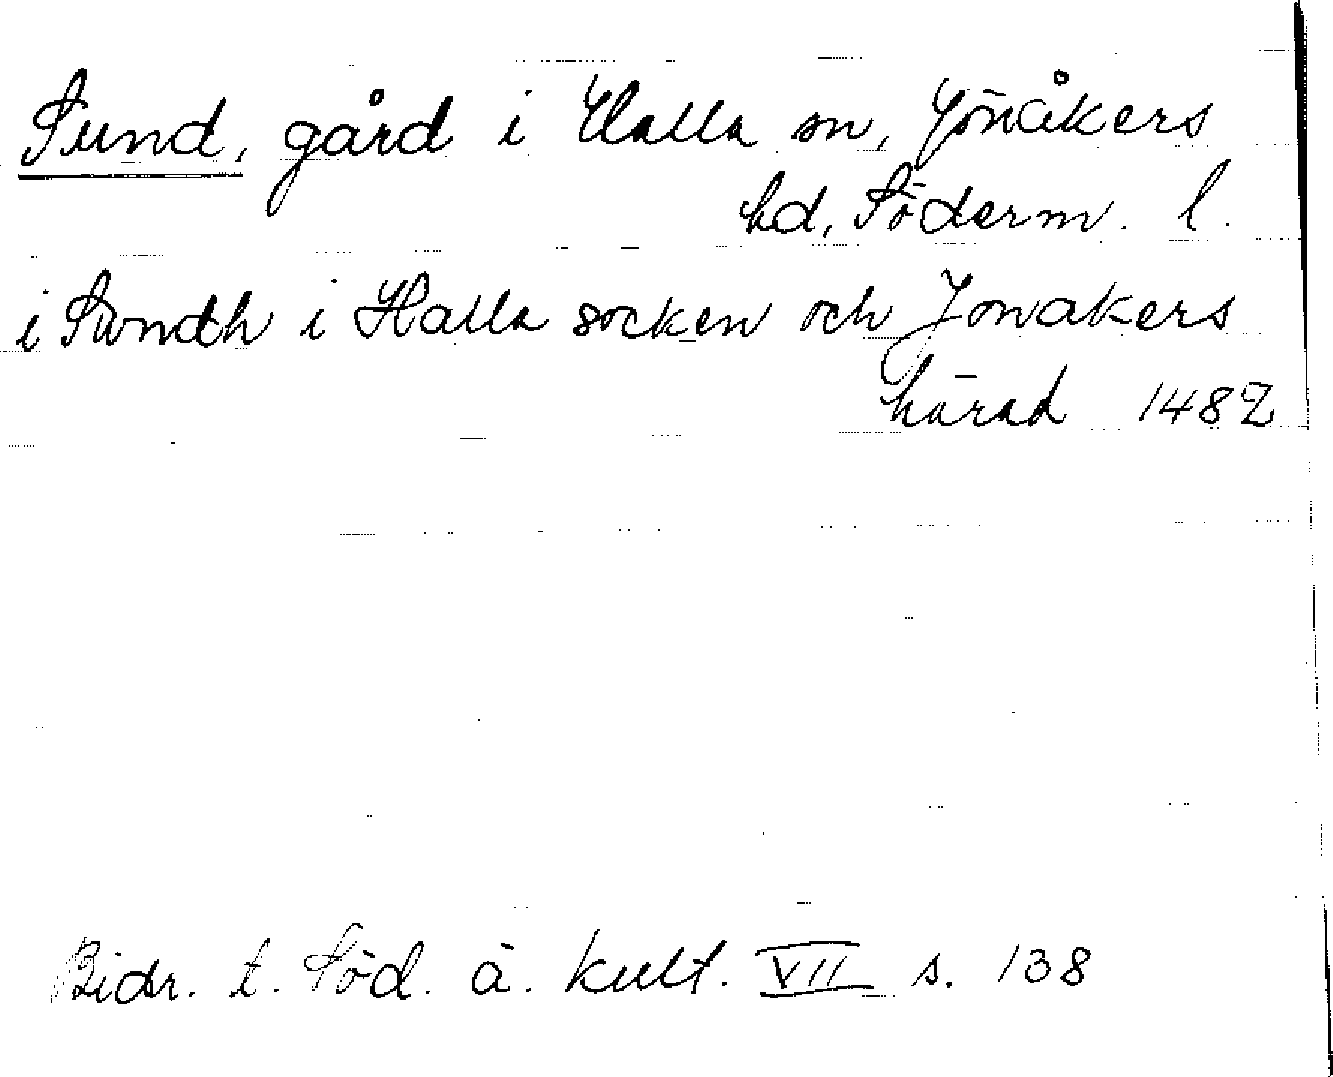 Sund, gård i Halla sn, Jönåkers
hd, Söderm. l.
i Sundh i Halla socken och Jonakers
härad 1482
Bidr. t. Söd. ä. kult. VII s. 138